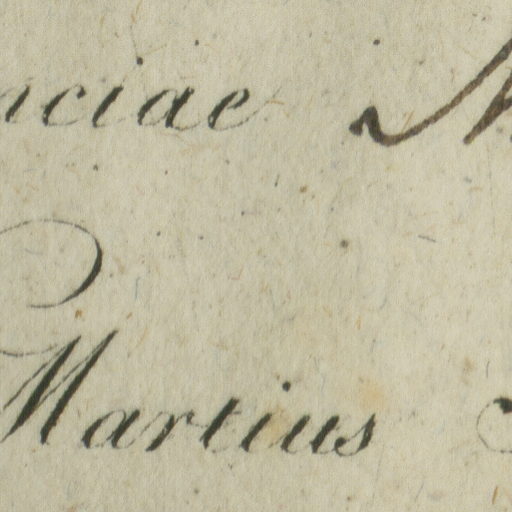 nciae
Martius